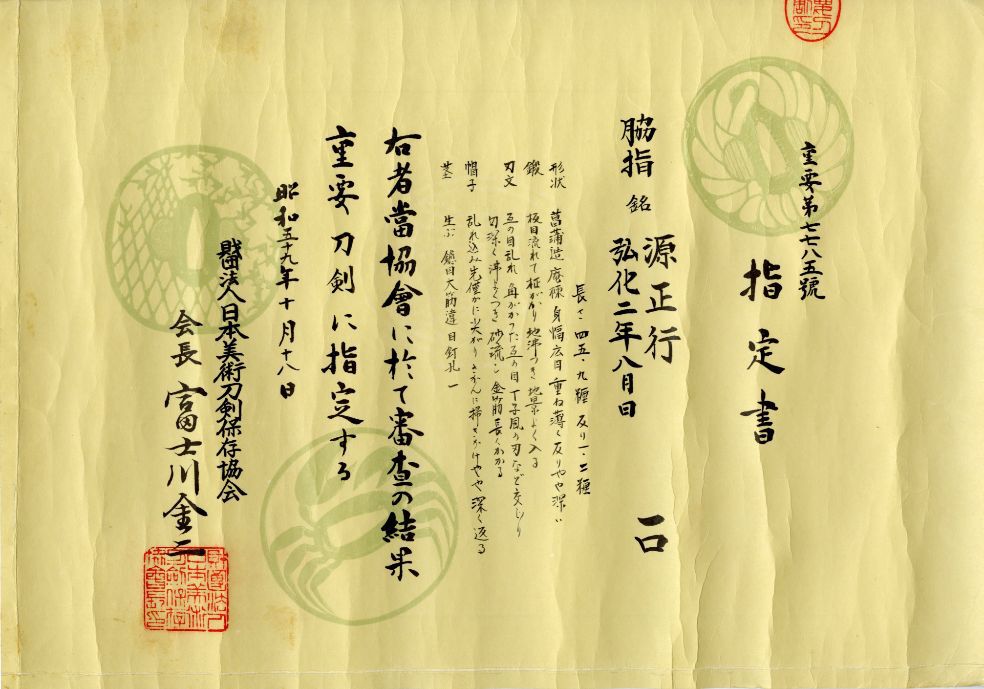 重要第七七八五號
指定書
脇指 銘 源正行
弘化二年八月日
一口
長さ 四五・九糎 反り一・二糎
形状 菖蒲造 庵棟 身幅広目 重ね薄く 反りやや深い
鍛 板目流れて柾がかり 地沸つき 地景よく入る
刃文 互の目乱れ 角がかった互の目 丁子風の刃など交じり
匂深く 沸よくつき 砂流し 金筋長くかかる
帽子 乱れ込み 先僅かに尖がり さかんに掃きかけ やや深く返る
茎 生ぶ 鑢目大筋違 目釘孔一
右者當協會に於て審査の結果
重要刀剣に指定する
昭和五十九年十月十八日
財団法人日本美術刀剣保存協会
会長 富士川金二